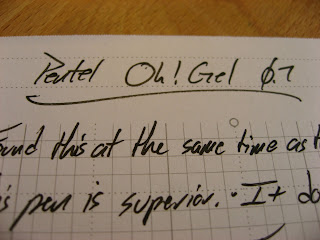 Pentel Oh! Gel 0.7
found this at the same time as t
is pen is superior. It do